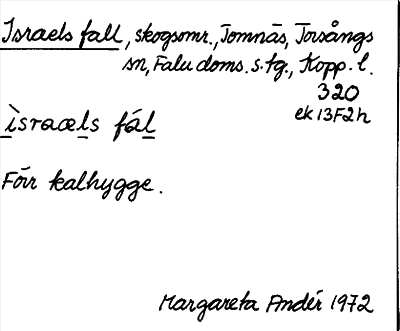 Israels fall, skogsomr., Tomnäs, Torsångs
sn, Falu doms. s. tg., Kopp. l.
320
ek 13F2h
ìsraæls fál
Förr kalhygge.
Margareta Andér 1972